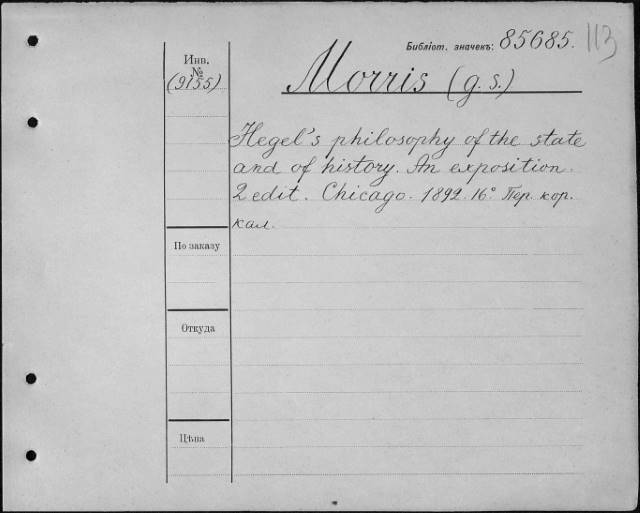 Библіот. значекъ: 85685. 113
Инв. № (9155)
Morris (g. s.)
Hegel's philosophy of the state
and of history. An exposition.
2 edit. Chicago. 1892. 16° Пер. кор.
кал.
По заказу
Откуда
Цѣна